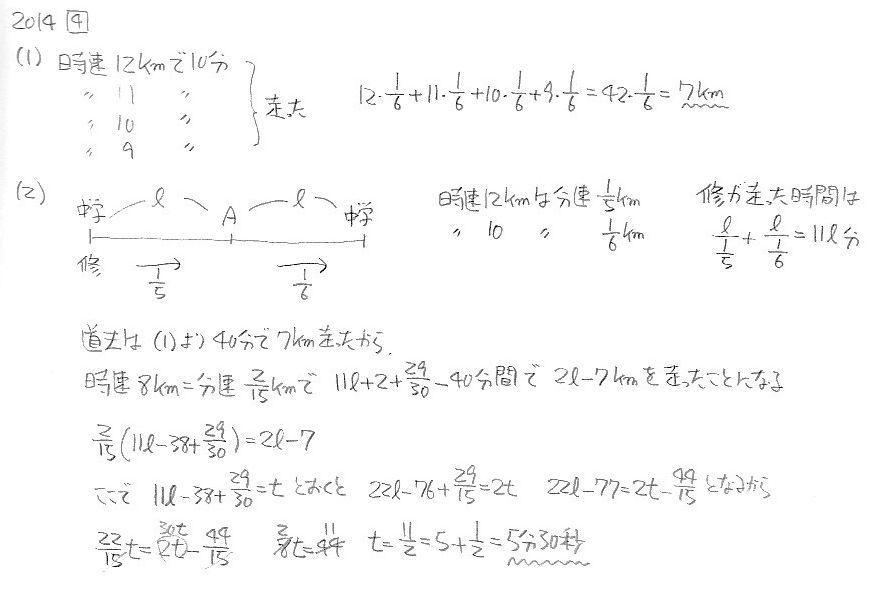 2014 4
(1) 時速12kmで10分
〃 11 〃
〃 10 〃
〃 9 〃
走った
12・1/6+11・1/6+10・1/6+9・1/6=42・1/6=7km
(2)
中学 l A l 中学
修 1/5 1/6
時速12kmは分速1/5km
〃 10 〃 1/6km
修が走った時間は
l/(1/5)+l/(1/6)=11l分
道夫は(1)より40分で7km走ったから、
時速8km=分速2/15kmで 11l+2+29/30-40分間で 2l-7kmを走ったことになる
2/15(11l-38+29/30)=2l-7
ここで 11l-38+29/30=tとおくと 22l-76+29/15=2t 22l-77=2t-44/15となるから
22/15t=2t-44/15 8t=44 t=11/2=5+1/2=5分30秒